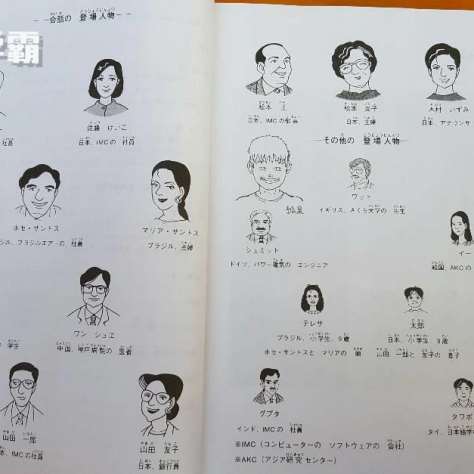 霸
―会話の 登場人物―
佐藤 けいこ
社員
日本、IMCの 社員
ホセ・サントス
マリア・サントス
ブラジルエアーの 社員
ブラジル、主婦
ワン シュエ
学生
中国、神戸病院の 医者
山田 一郎
山田 友子
日本、IMCの 社員
日本、銀行員
松本 正
松本 良子
木村 いずみ
日本、IMCの 部長
日本、主婦
日本、アナウンサー
―その他の 登場人物―
ワット
イギリス、さくら大学の 先生
シュミット
イー
ドイツ、パワー電気の エンジニア
韓国、AKCの
テレサ
太郎
ブラジル、小学生、9歳
日本、小学生、8歳
ホセ・サントスと マリアの 娘
山田 一郎と 友子の 息子
グプタ
タワポ
インド、IMCの 社員
タイ、日本語学
※IMC(コンピューターの ソフトウェアの 会社)
※AKC(アジア研究センター)